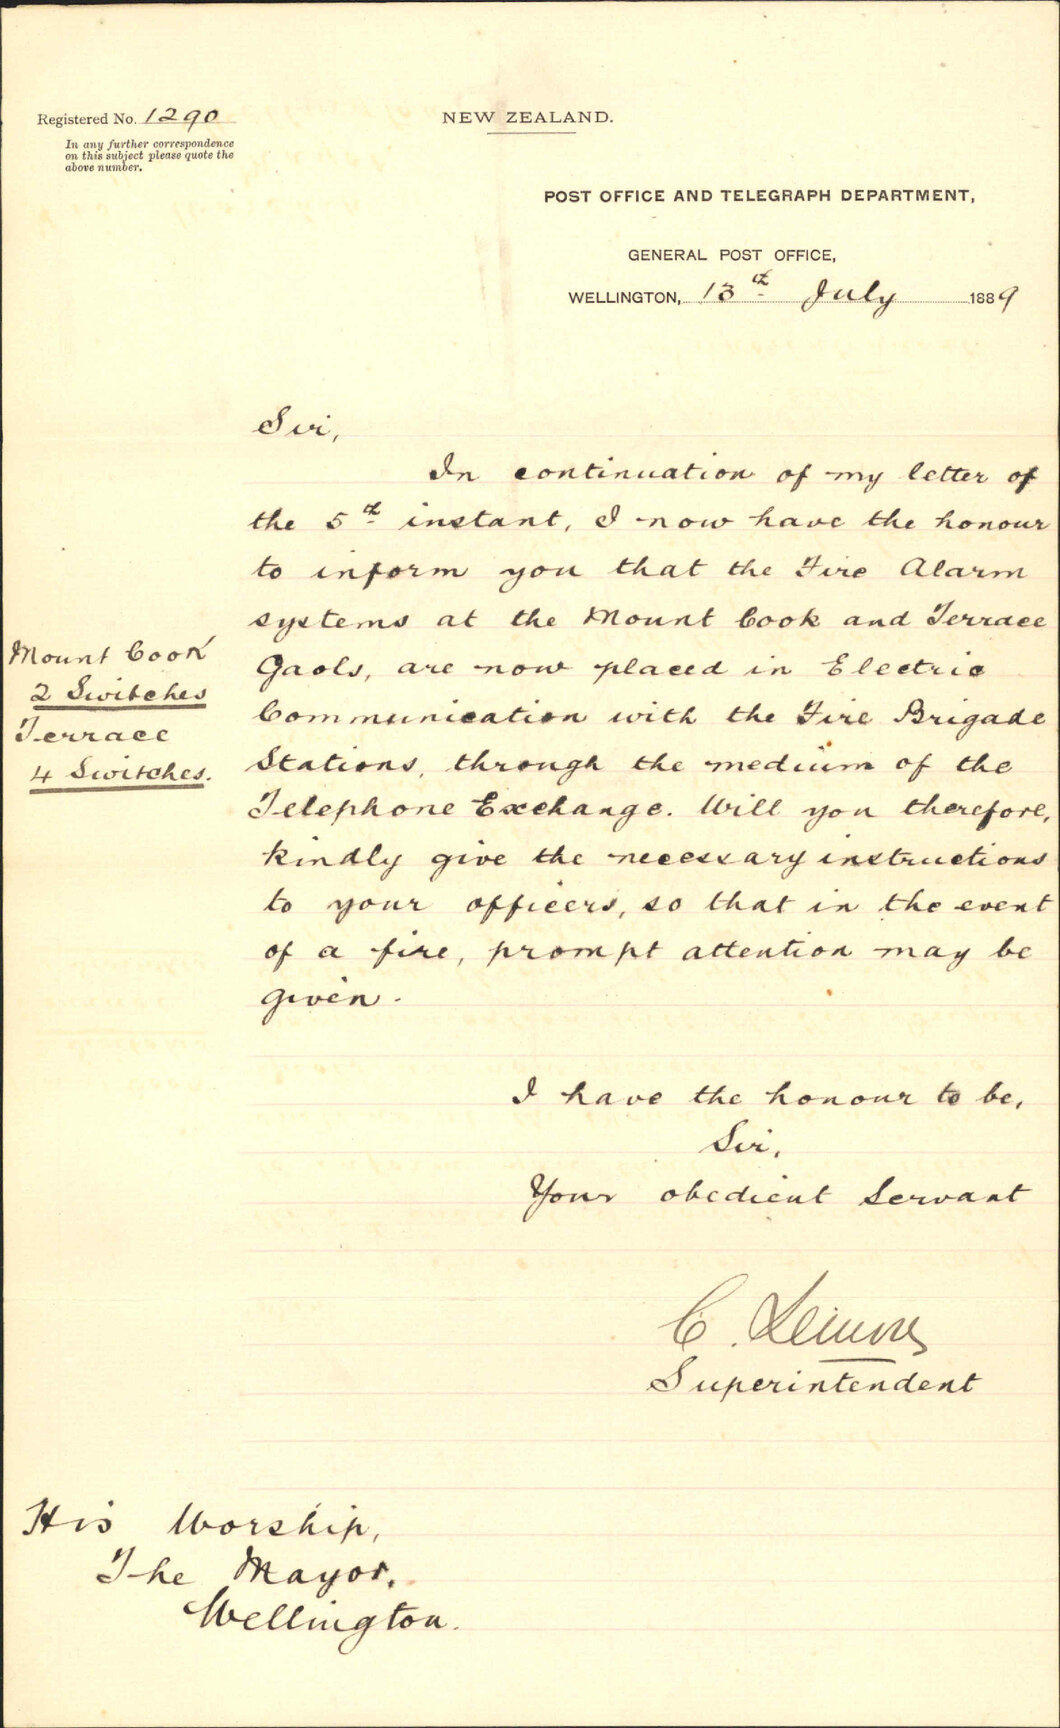 Registered No. 1290
In any further correspondence
on this subject please quote the
above number.
NEW ZEALAND.
POST OFFICE AND TELEGRAPH DEPARTMENT,
GENERAL POST OFFICE,
WELLINGTON, 13th July 1889
Sir,
In continuation of my letter of
the 5th instant, I now have the honour
to inform you that the Fire Alarm
systems at the Mount Cook and Terrace
Gaols, are now placed in Electric
Communication with the Fire Brigade
Stations, through the medium of the
Telephone Exchange. Will you therefore,
kindly give the necessary instructions
to your officers, so that in the event
of a fire, prompt attention may be
given.
Mount Cook
2 Switches
Terrace
4 Switches.
I have the honour to be,
Sir,
Your obedient Servant
C. Lemon
Superintendent
His Worship,
The Mayor,
Wellington.